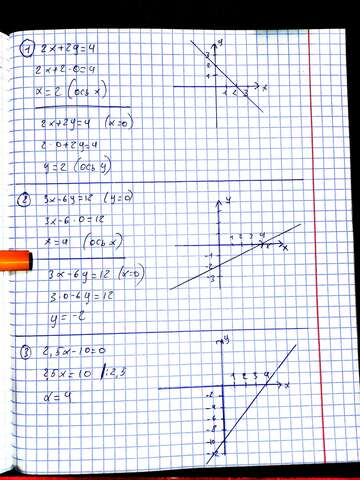 1 2x+2y=4
2x+2·0=4
x=2 (ось x)
2x+2y=4 (x=0)
2·0+2y=4
y=2 (ось y)
y
3
2
1
1 2 3
x
2 3x-6y=12 (y=0)
3x-6·0=12
x=4 (ось x)
3x-6y=12 (x=0)
3·0-6y=12
y=-2
y
1 2 3 4
x
-1
-2
-3
3 2,5x-10=0
2,5x=10 /:2,5
x=4
y
1 2 3 4
x
-2
-4
-6
-8
-10
-12